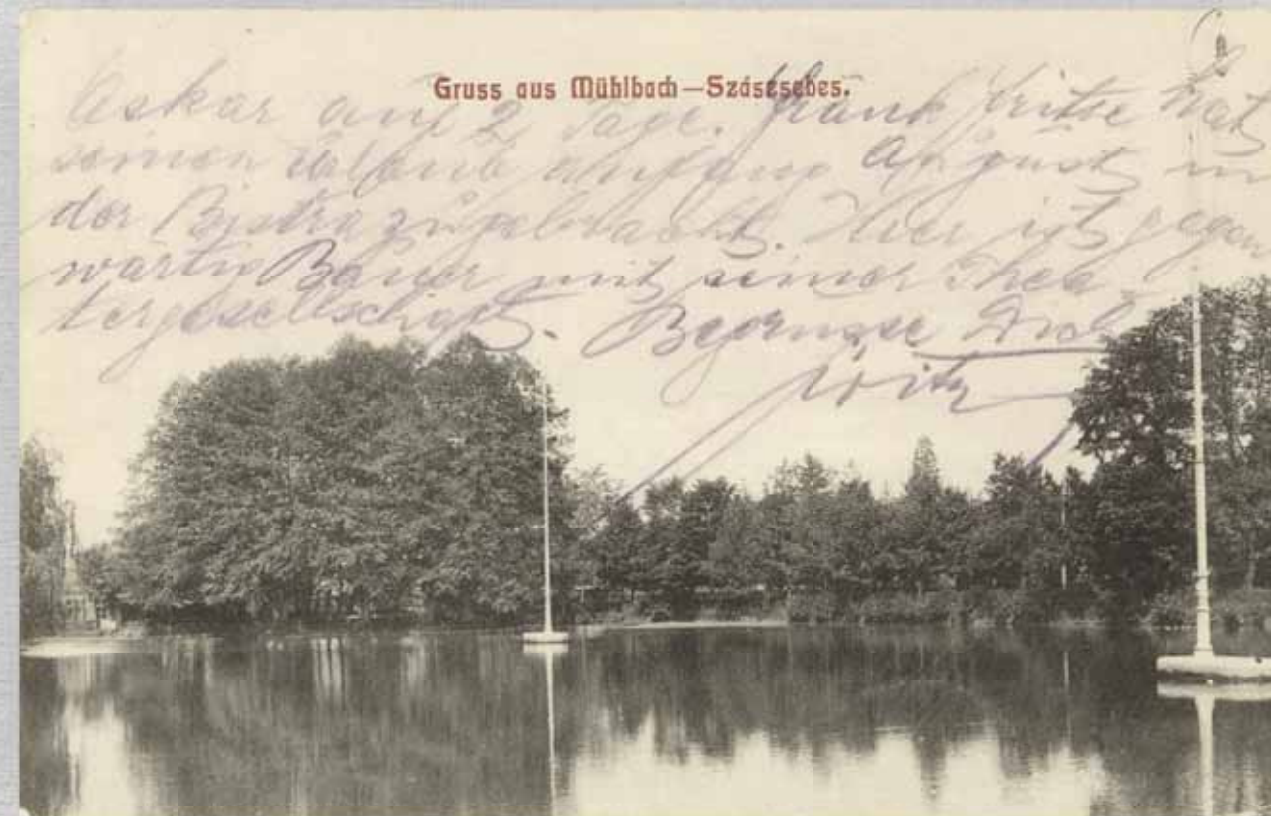 Gruss aus Mühlbach—Szászsebes.
Oskar auf 2 Tage. Frank Fritze hat
seinen Urlaub Anfang August in
der Bistra zugebracht. Hier ist gegen
wärtig Bauer mit seiner Thea
tergesellschaft. Begrüsse Dich
Fritz